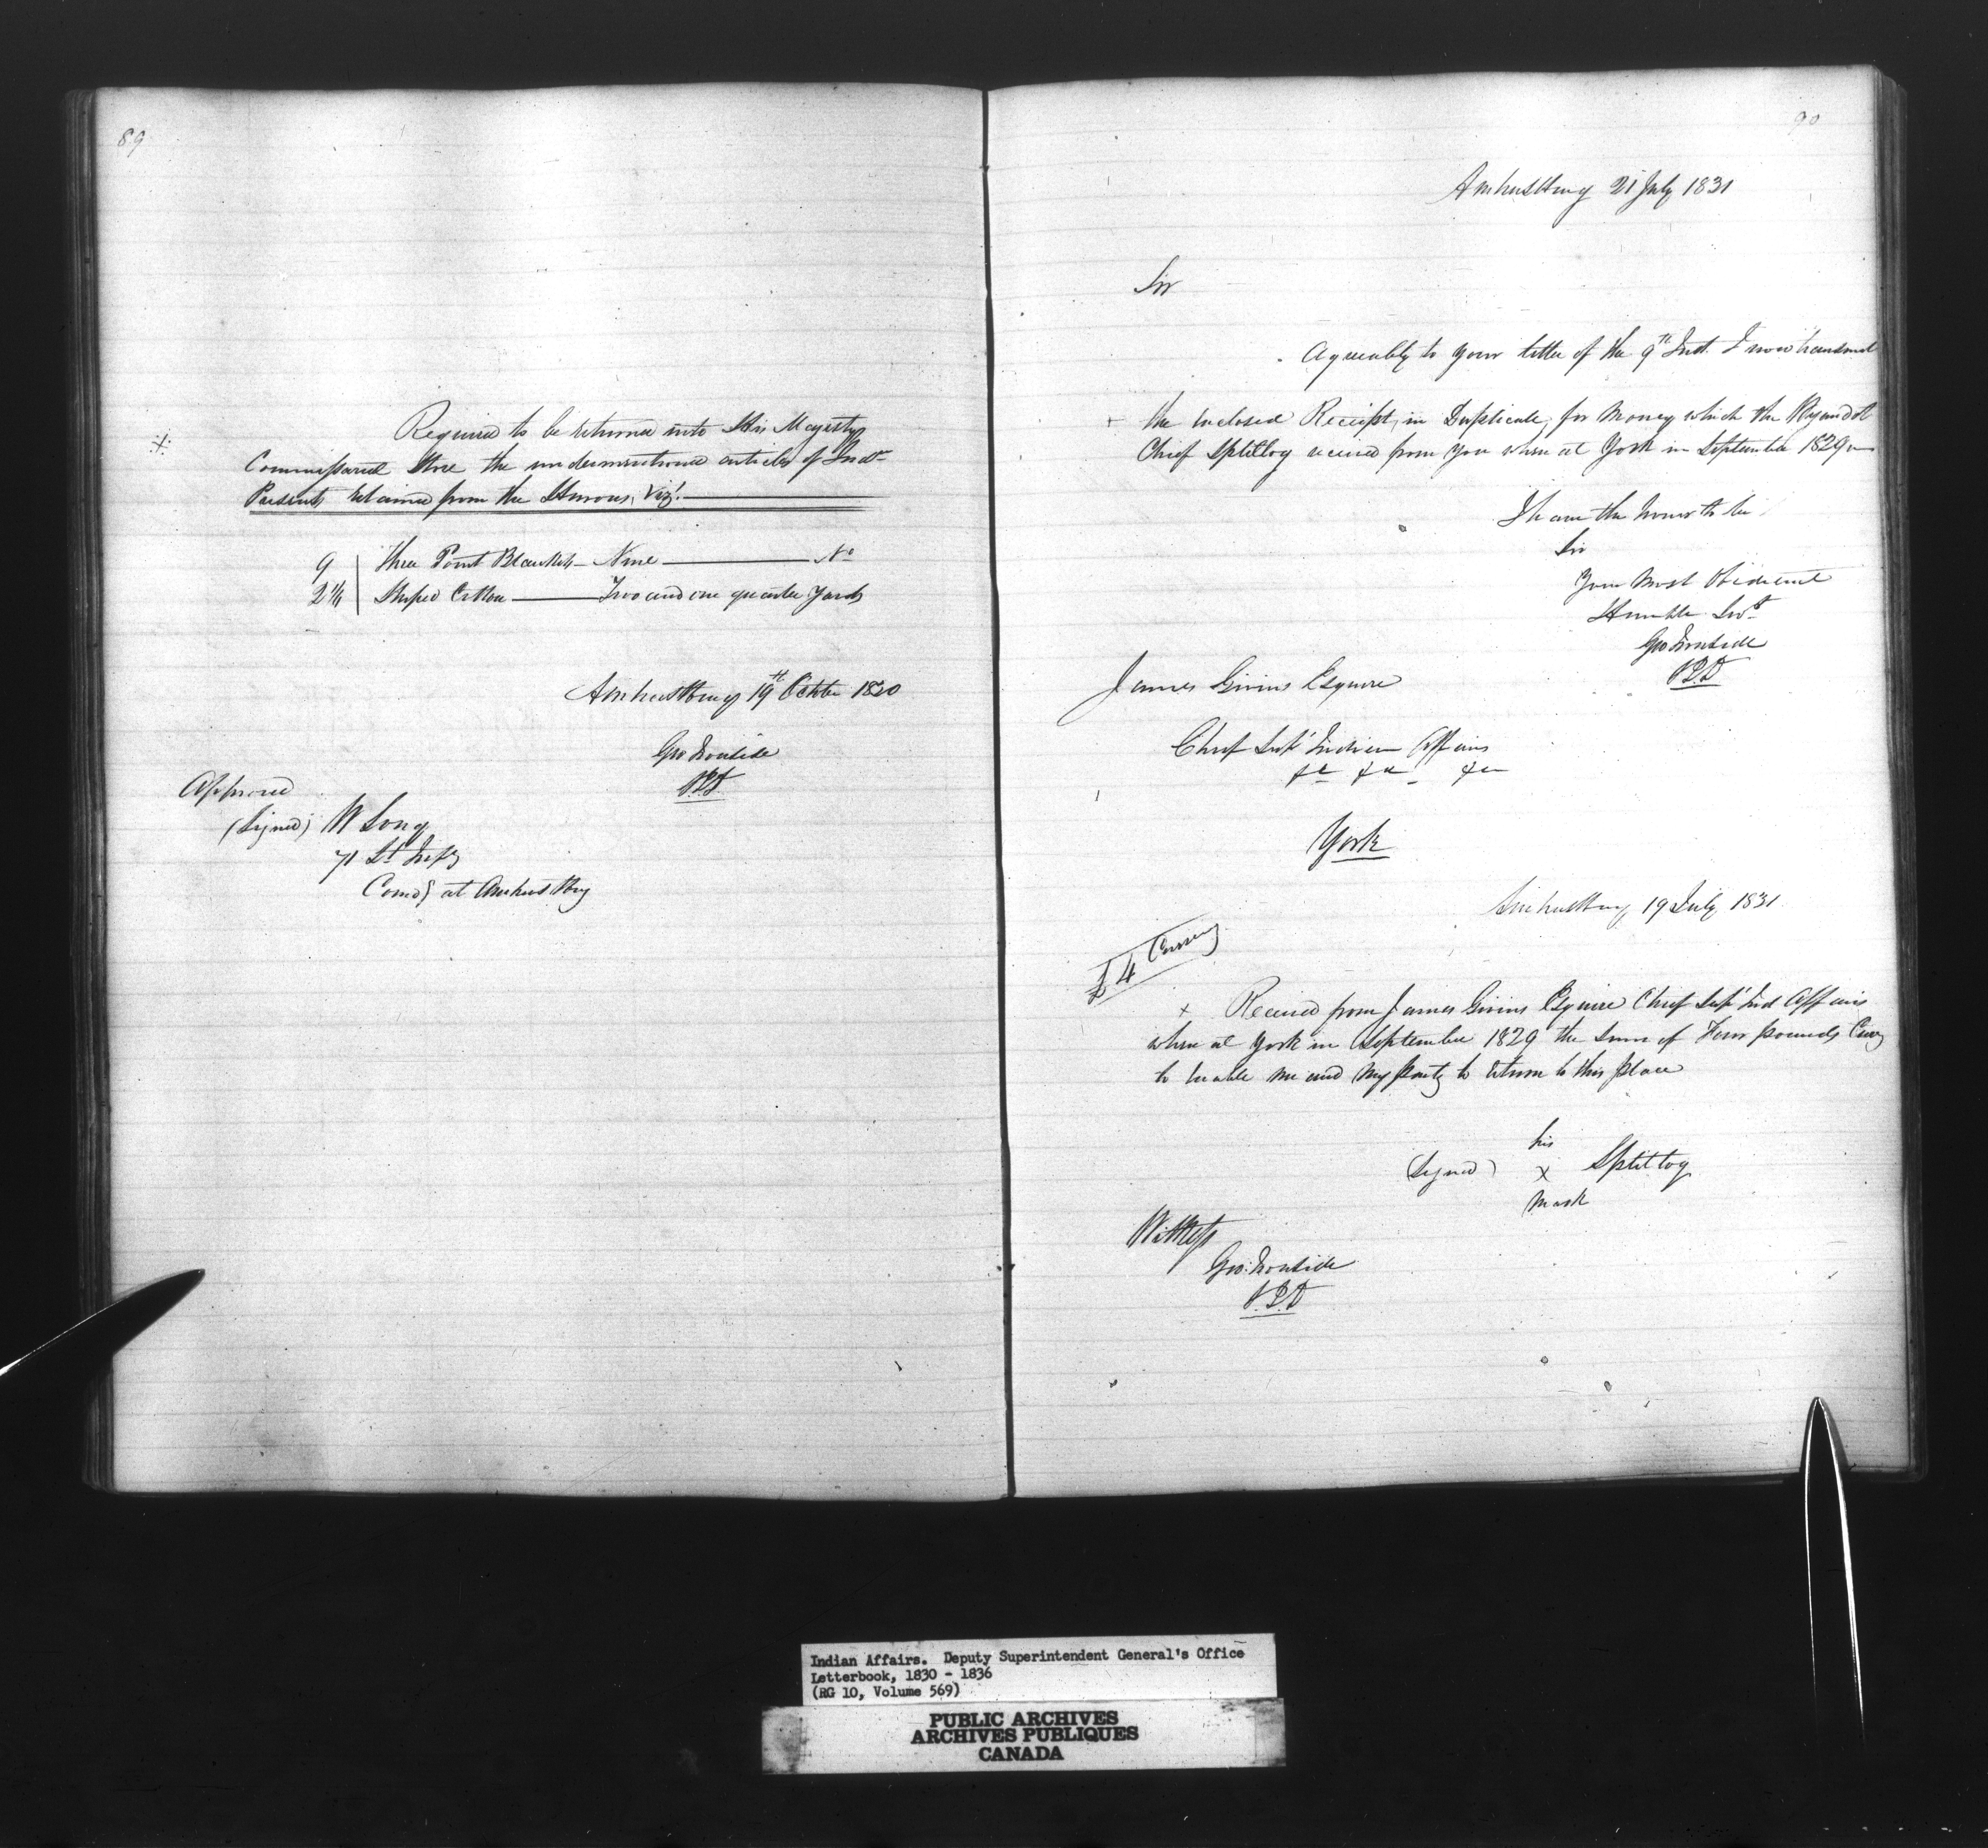 89
Required to be returned into His Majestys
Commissariat Store the undermentioned articles of Indn
Presents retained from the Hurons, Vizt.
9 Three Point Blankets - Nine No
2 1/4 Striped Cotton Two and one quarter Yards
Amherstburg 19th October 1830
Geo Ironside
S.I.A.
Approved
(Signed) W Long
71 Lt Infy
Comdg at Amherstburg
90
Amherstburg 21 July 1831
Sir
Agreeably to your letter of the 9th Inst. I now transmit
the Inclosed Receipt, in Duplicate, for Money which the Wyandot
Chief Splitlog received from you when at York in September 1829
I have the honor to be
Sir
Your Most Obedient
Humble Servt
Geo Ironside
James Givins Esquire
Chief Supt Indian Affairs
&c &c &c
York
Amherstburg 19 July 1831
£4 Currency
+ Received from James Givins Esquire Chief Supt Ind Affairs
when at York in September 1829 the sum of Four pounds Curcy
to enable me and my Party to return to this place
his
(Signed) x Splitlog
mark
Witness
Geo: Ironside
Indian Affairs. Deputy Superintendent General's Office
Letterbook, 1830 - 1836
(RG 10, Volume 569)
PUBLIC ARCHIVES
ARCHIVES PUBLIQUES
CANADA